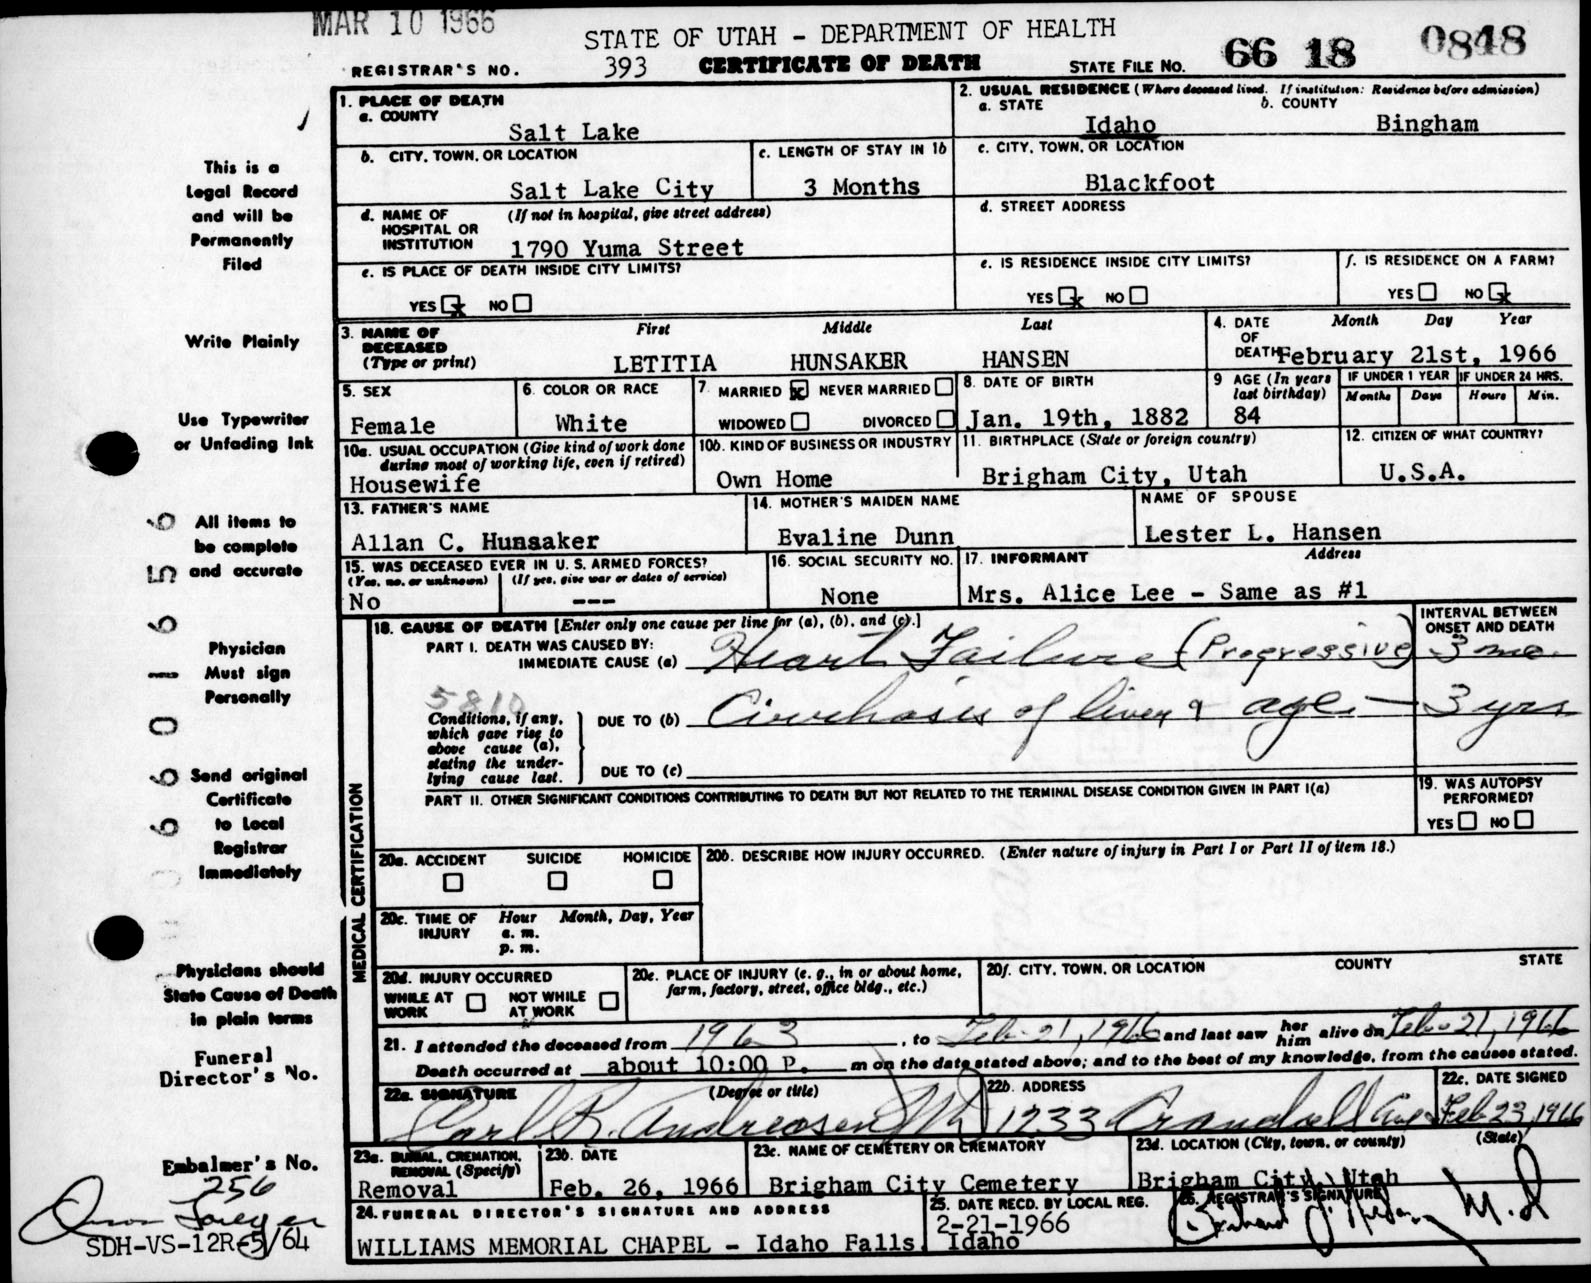 MAR 10 1966
STATE OF UTAH - DEPARTMENT OF HEALTH
REGISTRAR'S NO. 393 CERTIFICATE OF DEATH STATE FILE NO. 66 18 0848
1. PLACE OF DEATH
a. COUNTY
Salt Lake
2. USUAL RESIDENCE (Where deceased lived. If institution: Residence before admission)
a. STATE b. COUNTY
Idaho Bingham
b. CITY, TOWN, OR LOCATION
Salt Lake City
c. LENGTH OF STAY IN 1b
3 Months
c. CITY, TOWN, OR LOCATION
Blackfoot
d. NAME OF (If not in hospital, give street address)
HOSPITAL OR
INSTITUTION 1790 Yuma Street
d. STREET ADDRESS
e. IS PLACE OF DEATH INSIDE CITY LIMITS?
YES x NO
e. IS RESIDENCE INSIDE CITY LIMITS?
YES x NO
f. IS RESIDENCE ON A FARM?
YES NO x
3. NAME OF First Middle Last
DECEASED
(Type or print) LETITIA HUNSAKER HANSEN
4. DATE Month Day Year
OF
DEATH February 21st, 1966
5. SEX
Female
6. COLOR OR RACE
White
7. MARRIED x NEVER MARRIED
WIDOWED DIVORCED
8. DATE OF BIRTH
Jan. 19th, 1882
9 AGE (In years
last birthday)
84
IF UNDER 1 YEAR IF UNDER 24 HRS.
Months Days Hours Min.
10a. USUAL OCCUPATION (Give kind of work done
during most of working life, even if retired)
Housewife
10b. KIND OF BUSINESS OR INDUSTRY
Own Home
11. BIRTHPLACE (State or foreign country)
Brigham City, Utah
12. CITIZEN OF WHAT COUNTRY?
U.S.A.
13. FATHER'S NAME
Allan C. Hunsaker
14. MOTHER'S MAIDEN NAME
Evaline Dunn
NAME OF SPOUSE
Lester L. Hansen
15. WAS DECEASED EVER IN U. S. ARMED FORCES?
(Yes, no, or unknown) (If yes, give war or dates of service)
No ---
16. SOCIAL SECURITY NO.
None
17. INFORMANT Address
Mrs. Alice Lee - Same as #1
MEDICAL CERTIFICATION
18. CAUSE OF DEATH [Enter only one cause per line for (a), (b), and (c).]
INTERVAL BETWEEN
ONSET AND DEATH
PART I. DEATH WAS CAUSED BY:
IMMEDIATE CAUSE (a) Heart Failure (Progressive) 3 mo.
5810
Conditions, if any,
which gave rise to
above cause (a),
stating the under-
lying cause last.
DUE TO (b) Cirrhosis of liver & age - 3 yrs
DUE TO (c)
PART II. OTHER SIGNIFICANT CONDITIONS CONTRIBUTING TO DEATH BUT NOT RELATED TO THE TERMINAL DISEASE CONDITION GIVEN IN PART I(a)
19. WAS AUTOPSY
PERFORMED?
YES NO
20a. ACCIDENT SUICIDE HOMICIDE
20b. DESCRIBE HOW INJURY OCCURRED. (Enter nature of injury in Part I or Part II of item 18.)
20c. TIME OF Hour Month, Day, Year
INJURY a. m.
p. m.
20d. INJURY OCCURRED
WHILE AT NOT WHILE
WORK AT WORK
20e. PLACE OF INJURY (e. g., in or about home,
farm, factory, street, office bldg., etc.)
20f. CITY, TOWN, OR LOCATION COUNTY STATE
21. I attended the deceased from 1963, to Feb-21, 1966 and last saw her him alive on Feb-21, 1966
Death occurred at about 10:00 P. m on the date stated above; and to the best of my knowledge, from the causes stated.
22a. SIGNATURE (Degree or title)
Carl R. Andreasen MD
22b. ADDRESS
1233 Crandall Ave
22c. DATE SIGNED
Feb 23, 1966
23a. BURIAL, CREMATION,
REMOVAL (Specify)
Removal
23b. DATE
Feb. 26, 1966
23c. NAME OF CEMETERY OR CREMATORY
Brigham City Cemetery
23d. LOCATION (City, town, or county) (State)
Brigham City, Utah
24. FUNERAL DIRECTOR'S SIGNATURE AND ADDRESS
WILLIAMS MEMORIAL CHAPEL - Idaho Falls, Idaho
25. DATE RECD. BY LOCAL REG.
2-21-1966
26. REGISTRAR'S SIGNATURE
M.D
This is a
Legal Record
and will be
Permanently
Filed
Write Plainly
Use Typewriter
or Unfading Ink
All items to
be complete
and accurate
Physician
Must sign
Personally
Send original
Certificate
to Local
Registrar
Immediately
Physicians should
State Cause of Death
in plain terms
Funeral
Director's No.
Embalmer's No.
256
SDH-VS-12R-5/64